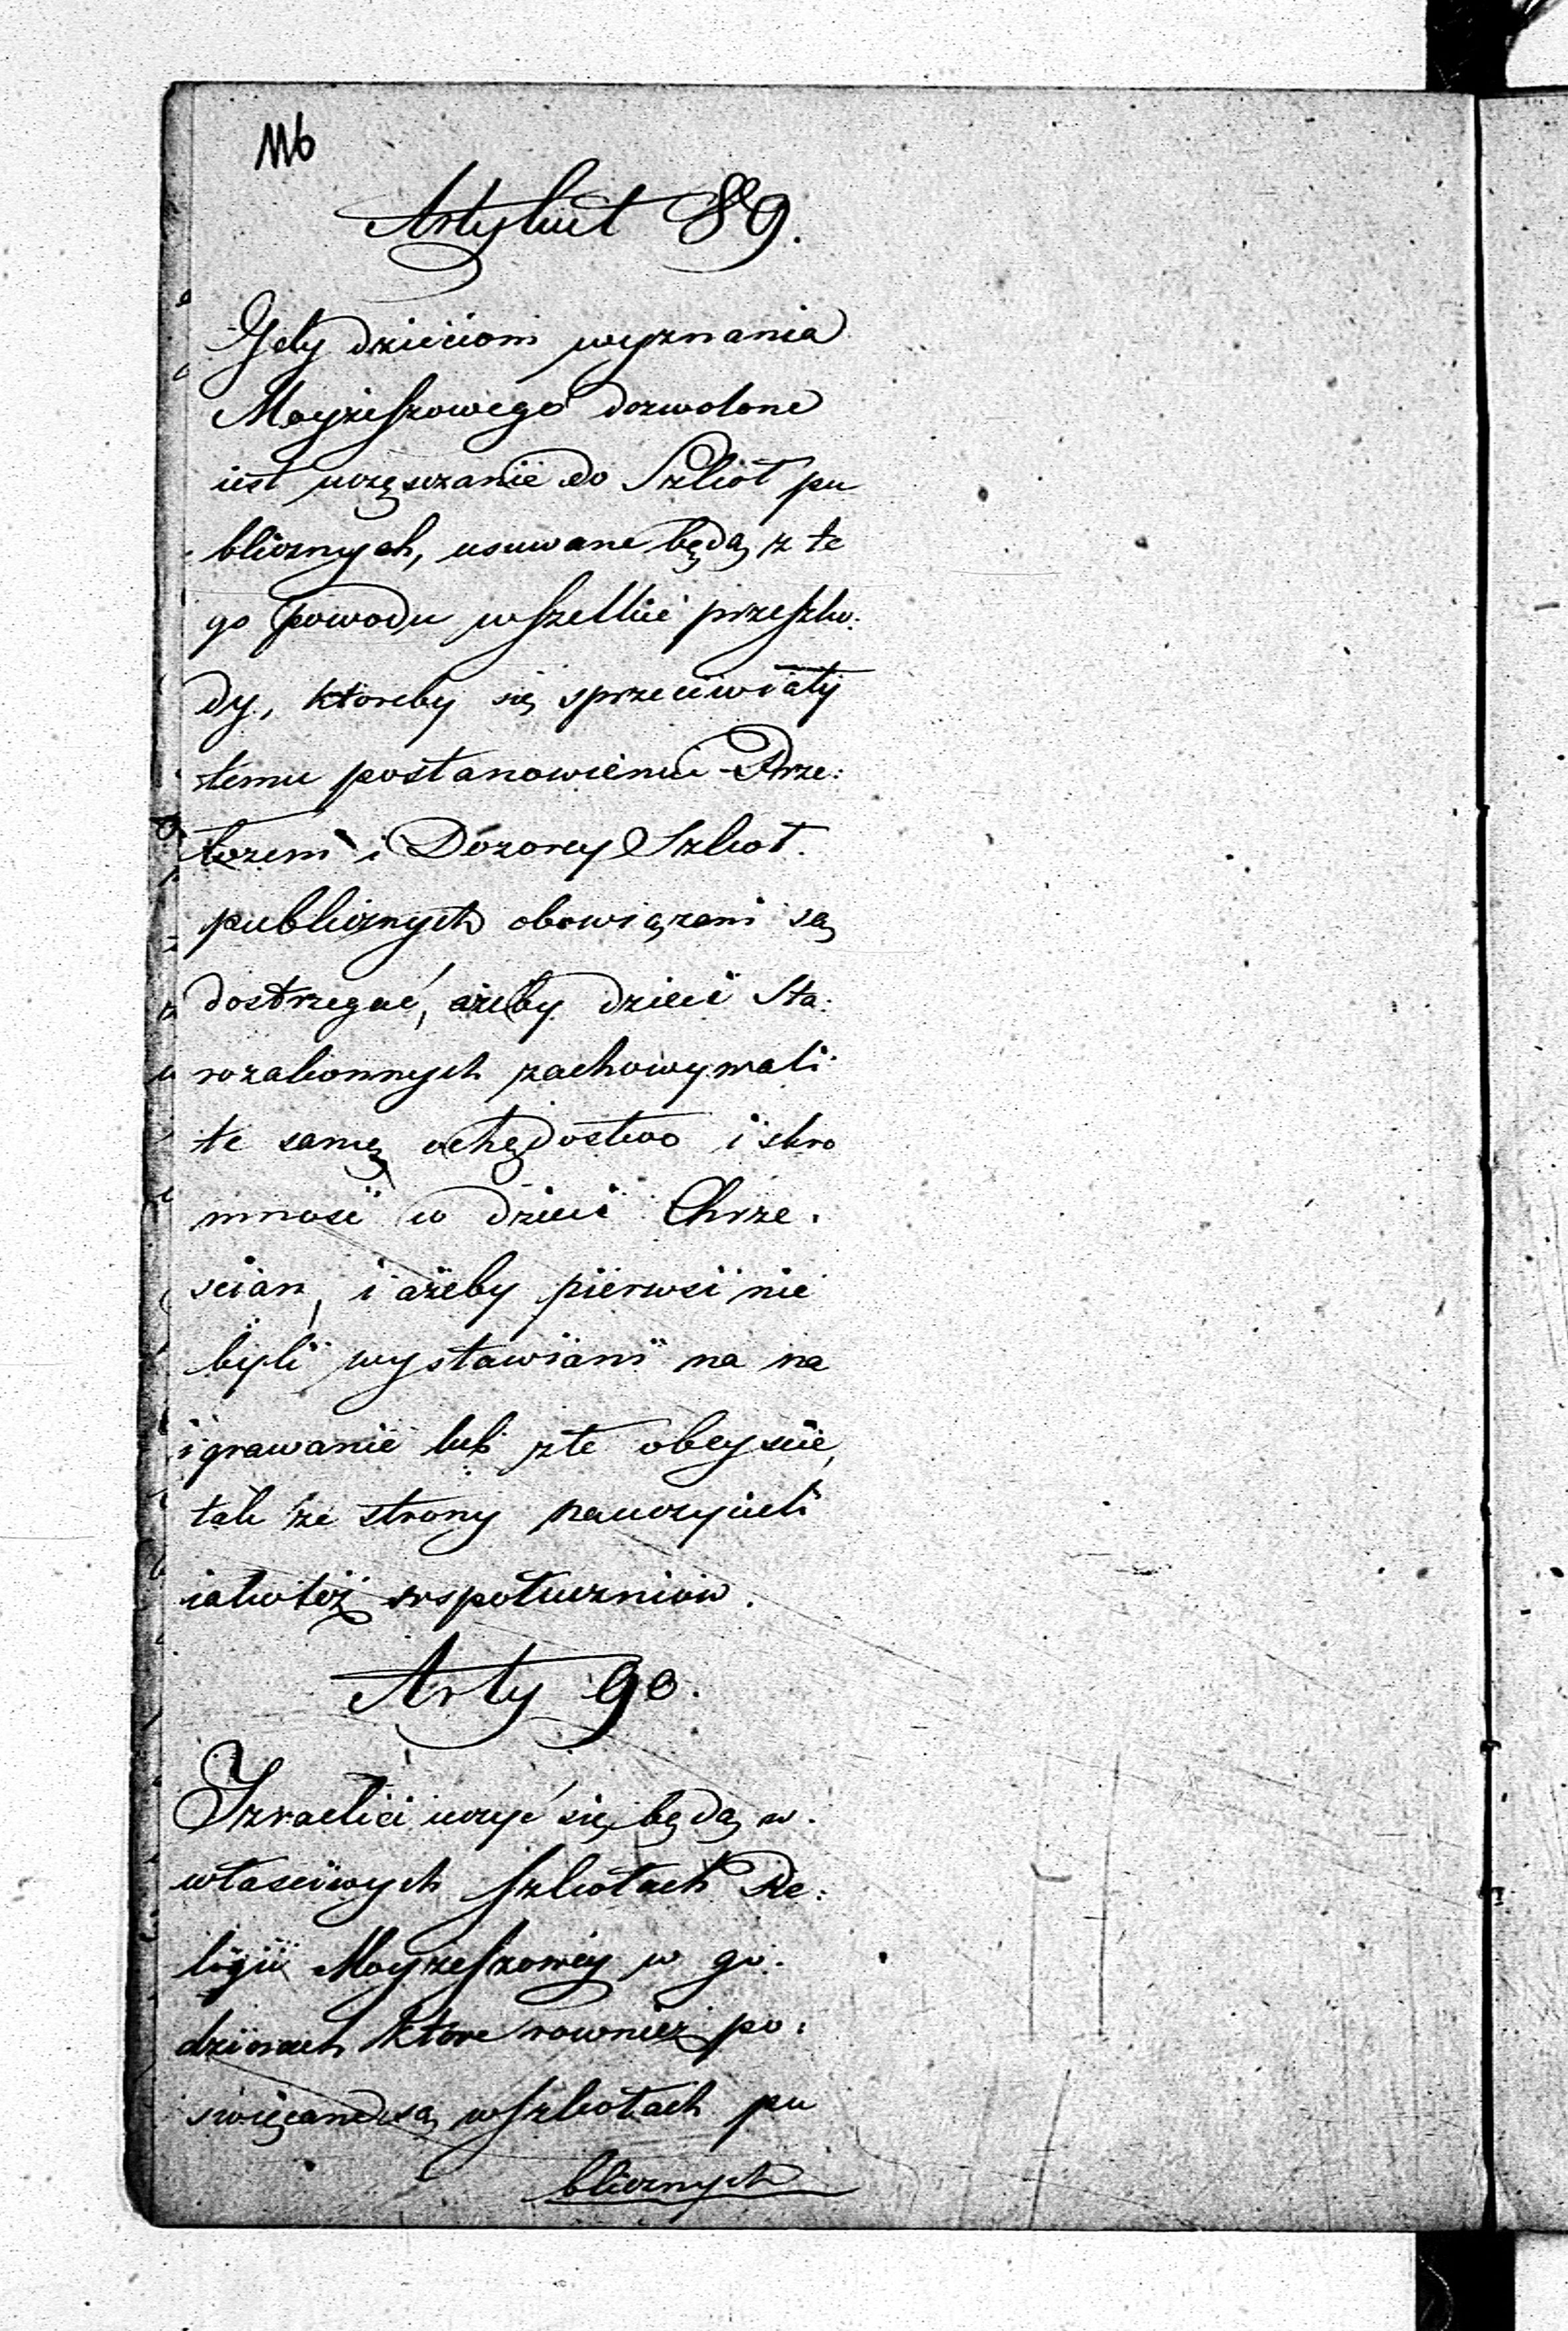 116
Artykuł 89.
Gdy dzieciom wyznania
Moyżeszowego dozwolone
iest uczęszczanie do Szkół pu
blicznych, usuwane będą z te
go powodu wszelkie przeszko:
dy, któreby się sprzeciwiały
temu postanowieniu Prze:
łożeni i Dozorcy Szkoł
publicznych obowiązani są
dostrzegać, ażeby dzieci Sta:
rozakonnych zachowywali
te samę ochędostwo i skro
mnosć co dzieci Chrze.
scian, i ażeby pierwsi nie
byli wystawiani na na
igrawanie lub złe obeyscie,
tak ze strony nauczycieli
iako też wspołuczniów.
Arty 90.
Izraelici uczyć się będą w.
własciwych szkołach Re:
ligii Moyżeszowey w go:
dzinach które rownież po:
święcane są w szkołach pu
blicznych